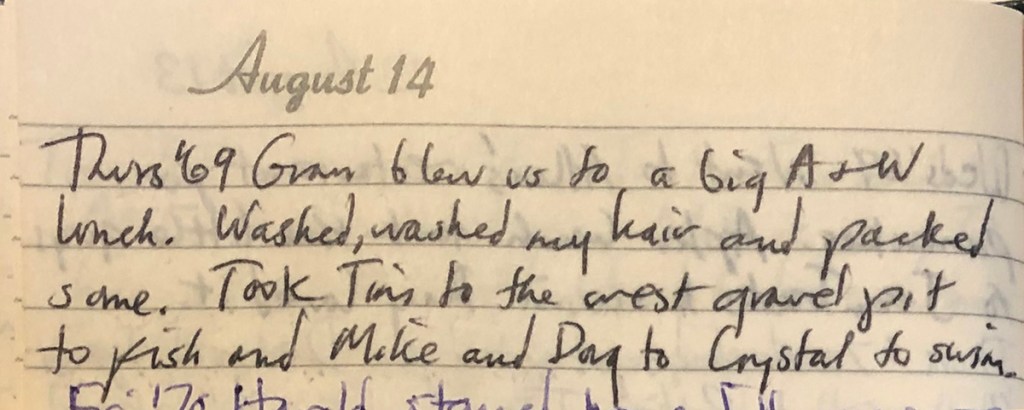 August 14
Thurs '69 Gram blew us to a big A & W
lunch. Washed, washed my hair and packed
some. Took Tim to the west gravel pit
to fish and Mike and Dag to Crystal to swim.
Fri '70